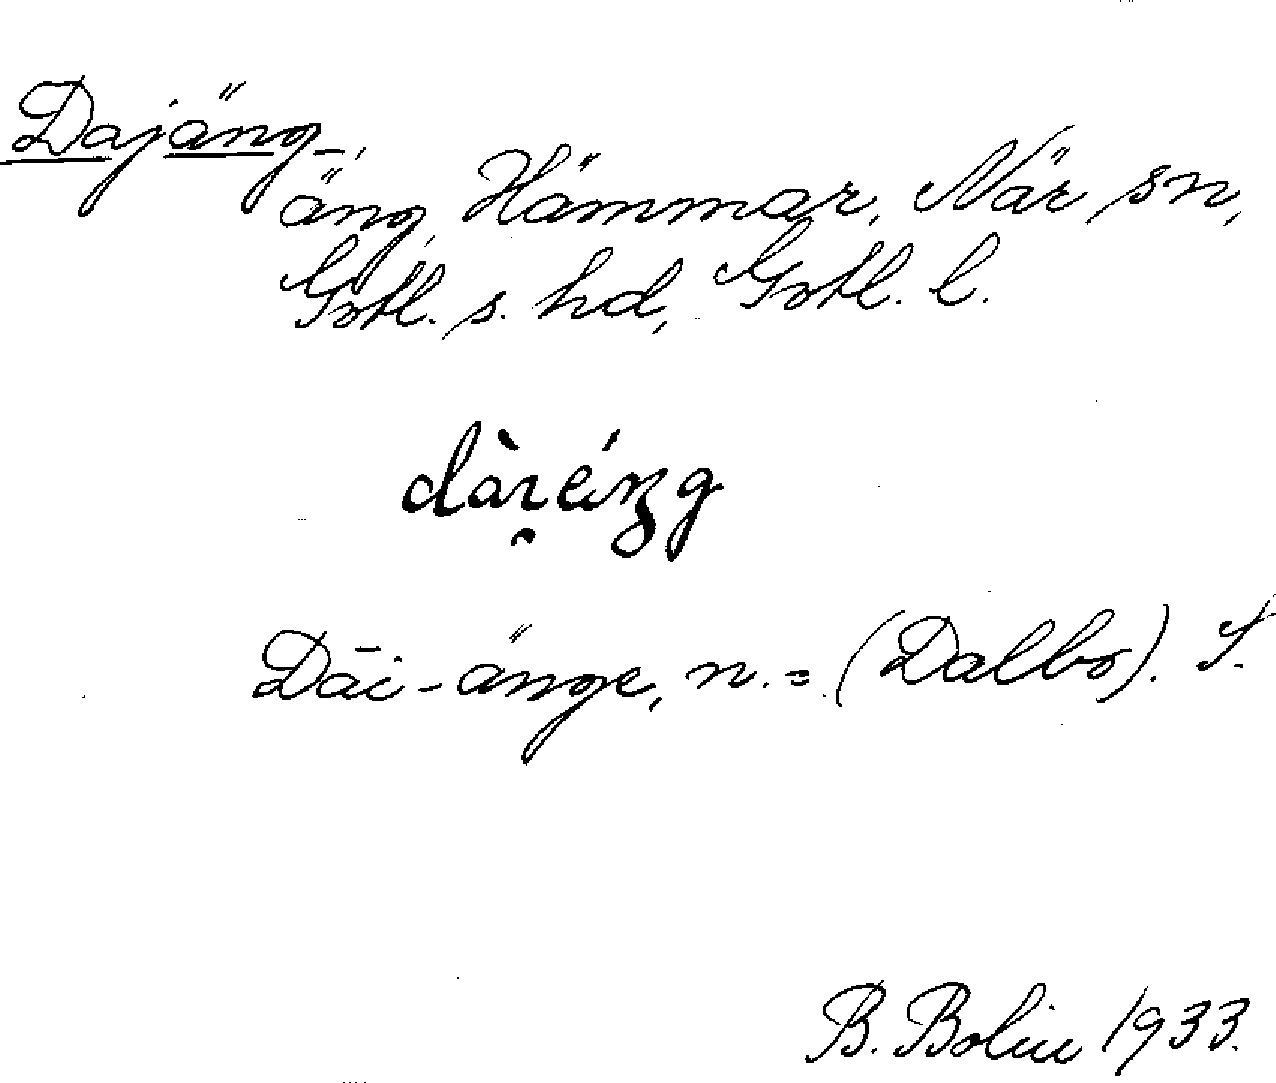 Dajäng
äng, Hämmar, När sn,
Gotl. s. hd, Gotl. l.
Dāi-änge, n. = (Dalbo). S.
B. Bolin 1933.